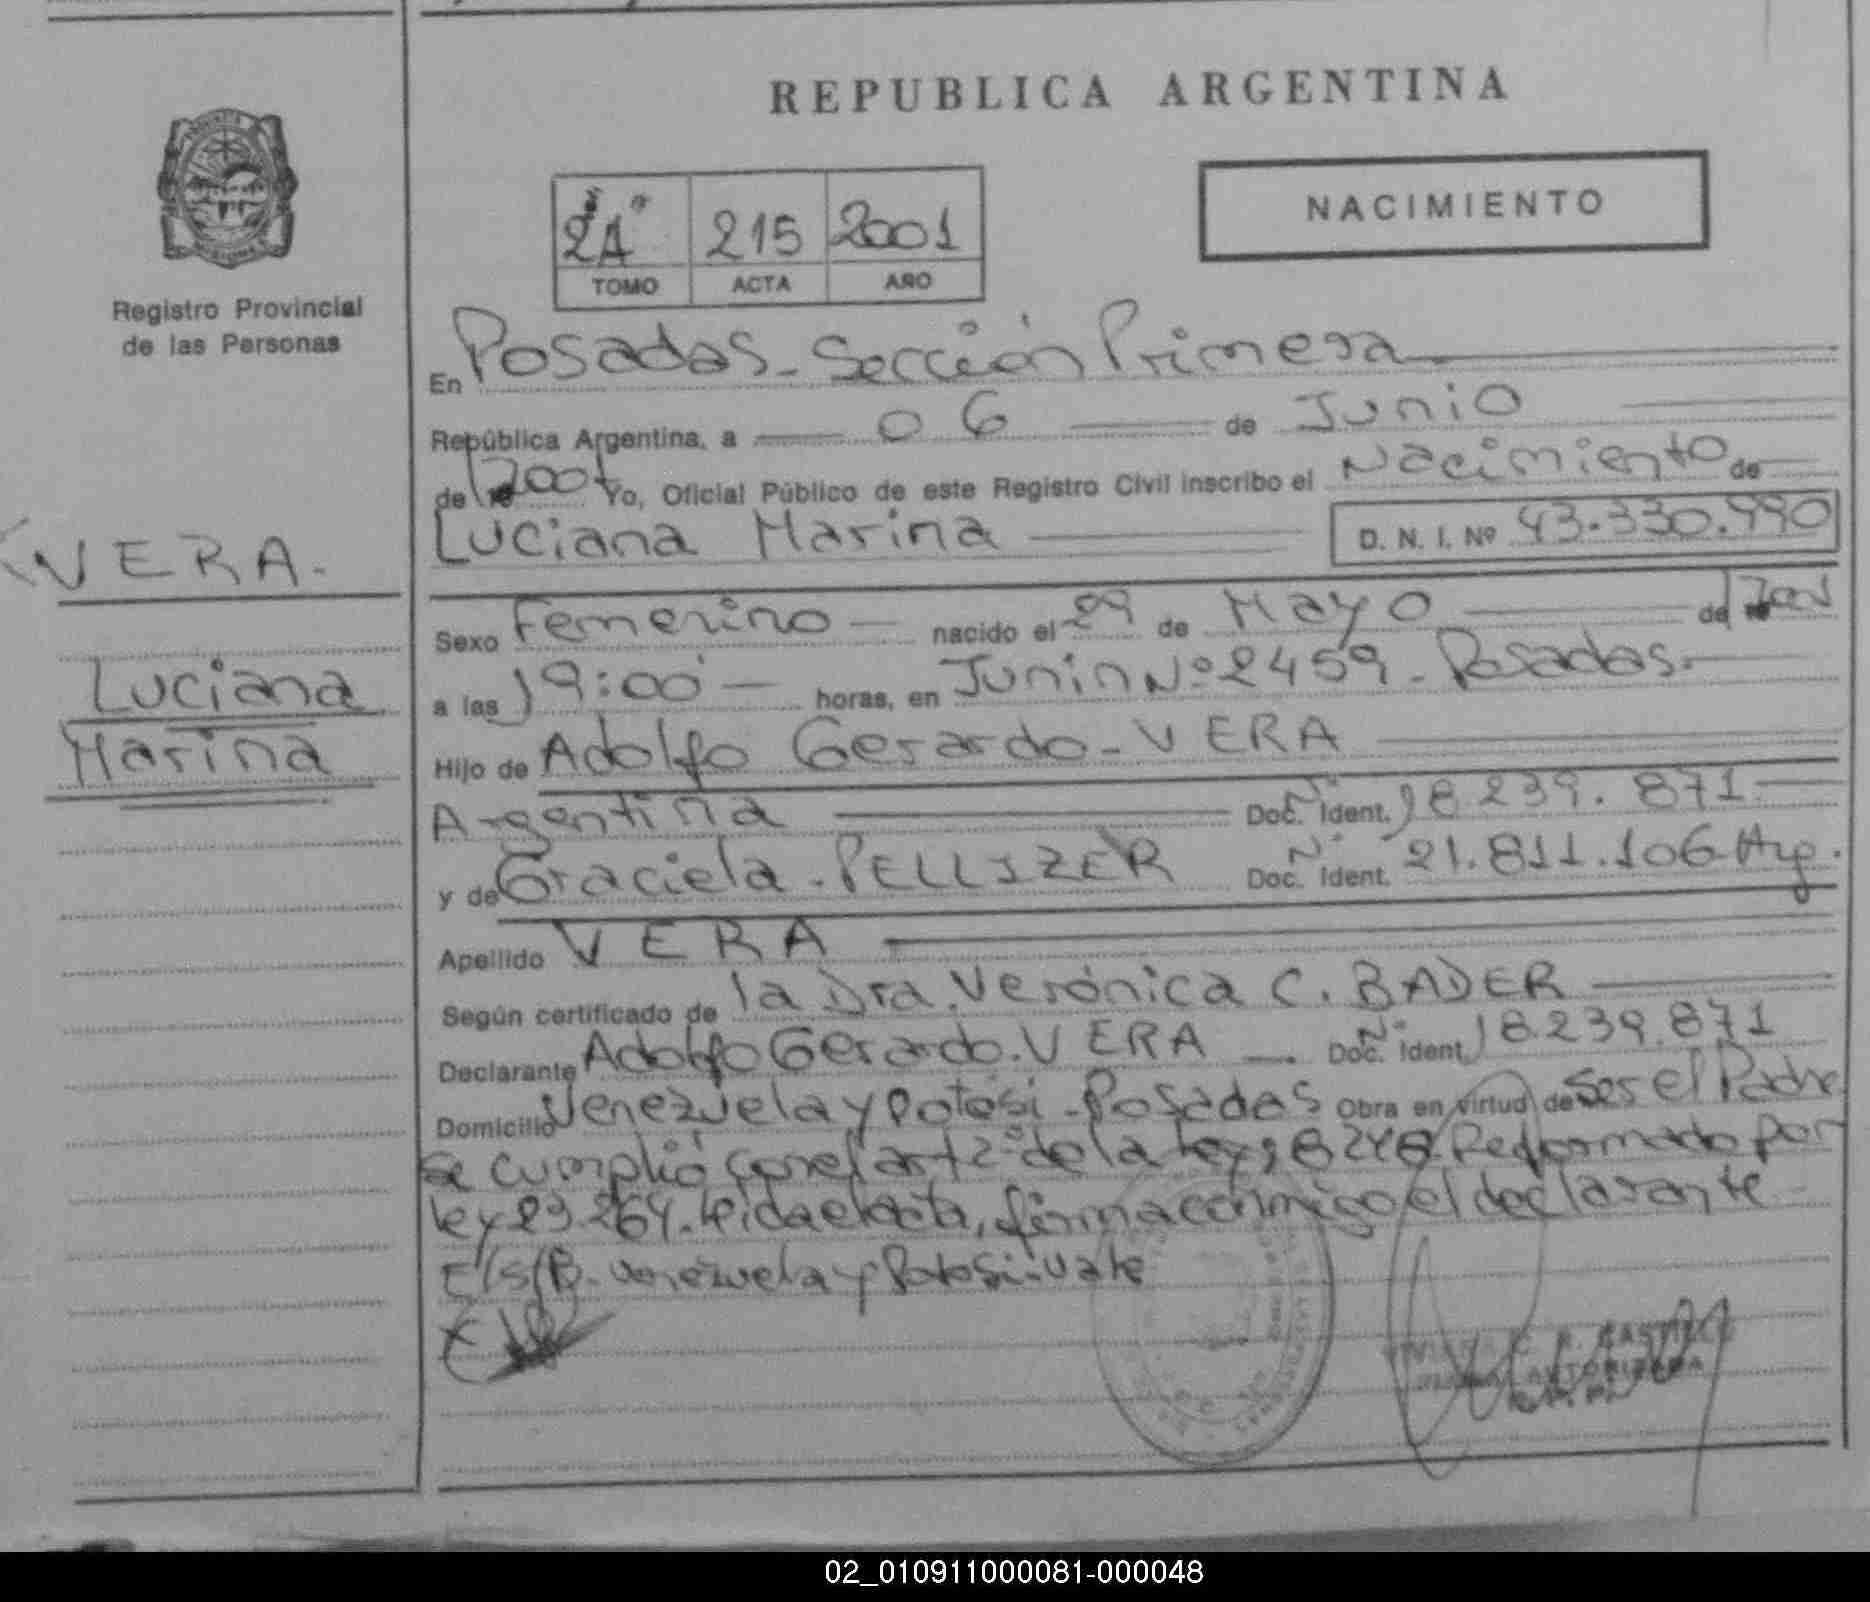 REPUBLICA ARGENTINA
NACIMIENTO
2A 215 2001
TOMO ACTA AÑO
Registro Provincial
de las Personas
VERA.
Luciana
Marina
En Posadas - Sección Primera
República Argentina, a 06 de Junio
de 2001 Yo, Oficial Público de este Registro Civil inscribo el Nacimiento de
Luciana Marina D. N. I. Nº 43.330.990
Sexo Femenino nacido el 29 de Mayo de 2001
a las 19:00 horas, en Junin Nº 2459 - Posadas.
Hijo de Adolfo Gerardo - VERA
Argentina Doc. Ident. 18.239.871
y de Graciela - PELLIZER Doc. Ident. 21.811.106 Arg.
Apellido VERA
Según certificado de la Dra. Verónica C. BADER
Declarante Adolfo Gerardo. VERA Doc. Ident. 18.239.871
Domicilio Venezuela y Potosi - Posadas Obra en virtud de ser el Padre
se cumplió con el art 2º de la Ley 18248 Reformado por
Ley 23.264. Leida el acta, firma conmigo el declarante
E/S/B. Venezuela y Potosi: Vale
AUTORIZADA
02_010911000081-000048